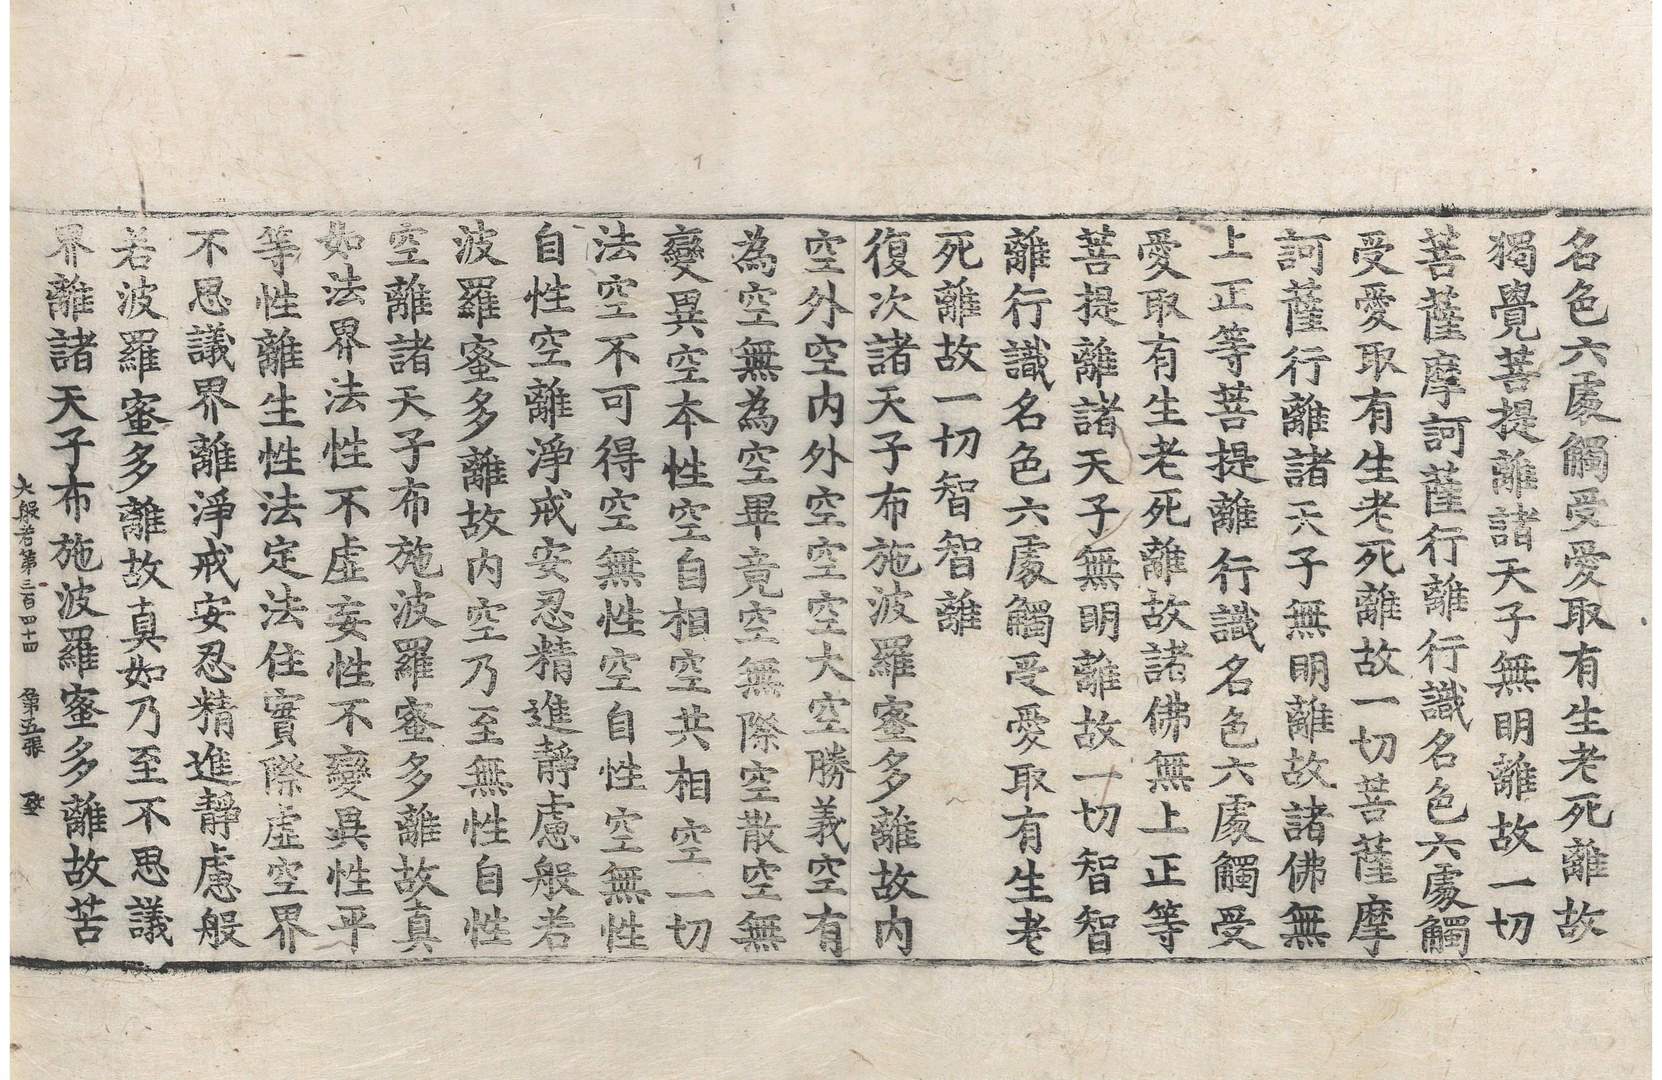 名色六處觸受愛取有生老死離故
獨覺菩提離諸天子無明離故一切
菩薩摩訶薩行離行識名色六處觸
受愛取有生老死離故一切菩薩摩
訶薩行離諸天子無明離故諸佛無
上正等菩提離行識名色六處觸受
愛取有生老死離故諸佛無上正等
菩提離諸天子無明離故一切智智
離行識名色六處觸受愛取有生老
死離故一切智智離
復次諸天子布施波羅蜜多離故內
空外空內外空空空大空勝義空有
為空無為空畢竟空無際空散空無
變異空本性空自相空共相空一切
法空不可得空無性空自性空無性
自性空離淨戒安忍精進靜慮般若
波羅蜜多離故內空乃至無性自性
空離諸天子布施波羅蜜多離故真
如法界法性不虛妄性不變異性平
等性離生性法定法住實際虛空界
不思議界離淨戒安忍精進靜慮般
若波羅蜜多離故真如乃至不思議
界離諸天子布施波羅蜜多離故苦
大般若第三百四十四 第五張 致